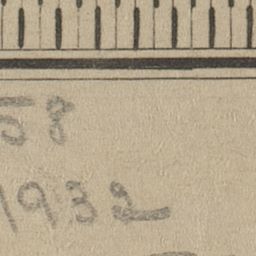 58
1932